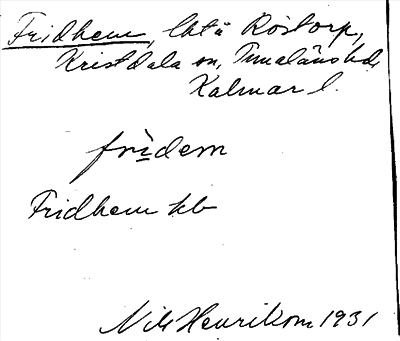 Fridhem, lht u Röstorp,
Kristdala sn, Tunaläns hd,
Kalmar l.
frìdem
Fridhem kb
Nils Henrikson 1931